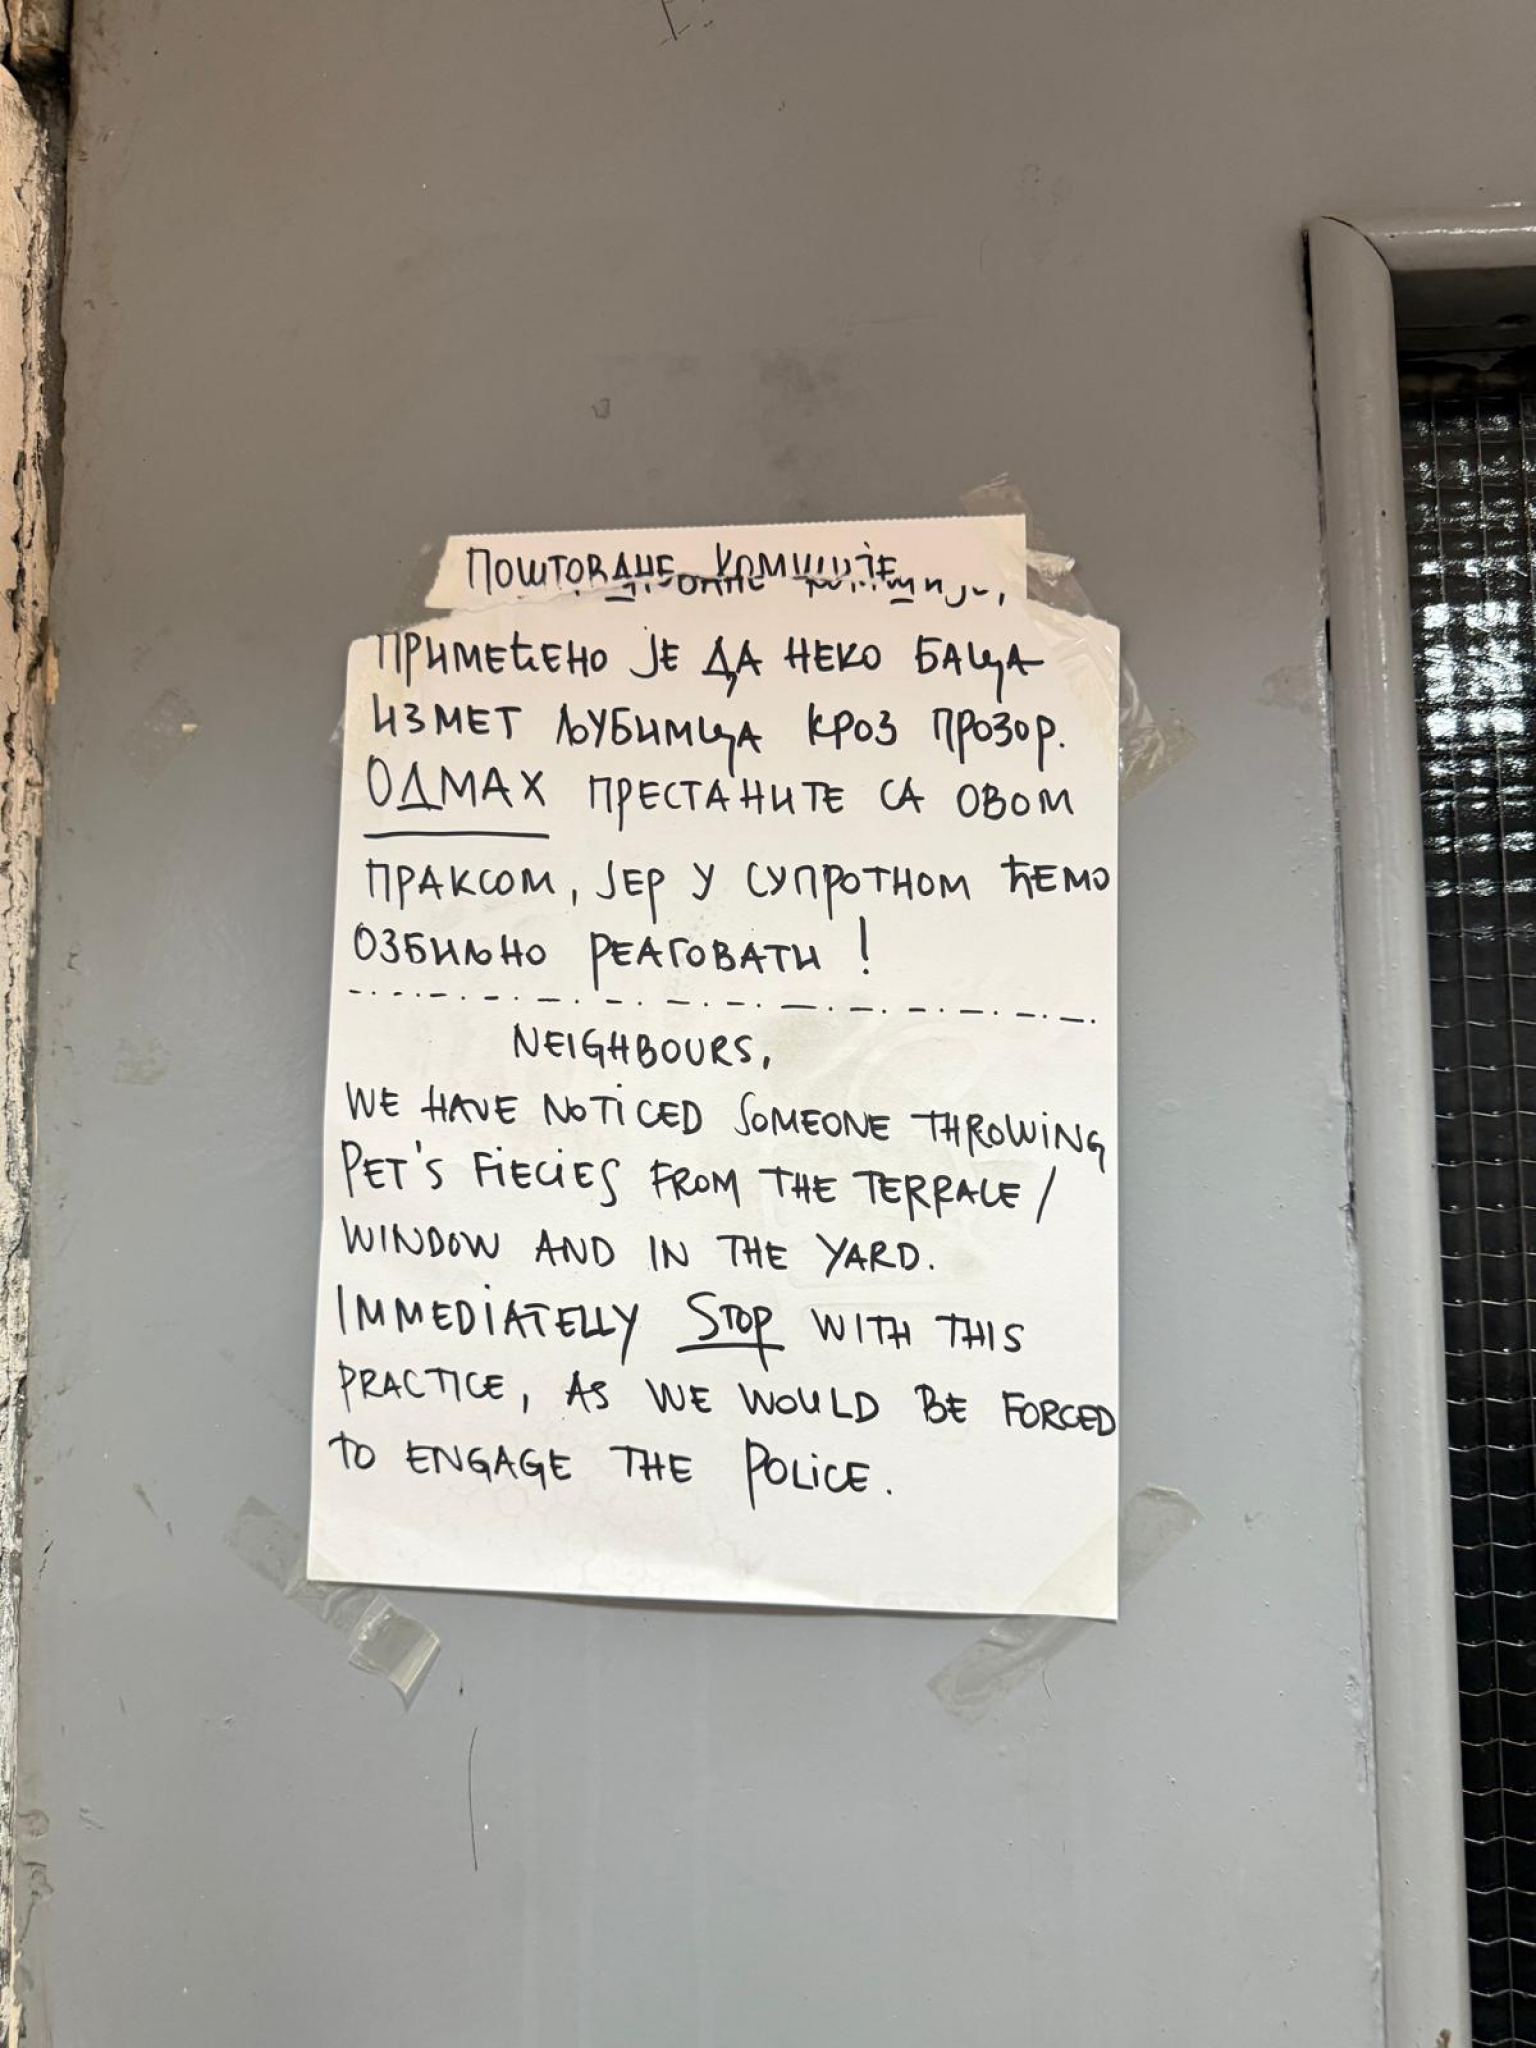 ПОШТОВАНЕ КОМШИЈЕ
ПРИМЕЋЕНО ЈЕ ДА НЕКО БАЦА
ИЗМЕТ ЉУБИМЦА КРОЗ ПРОЗОР.
ОДМАХ ПРЕСТАНИТЕ СА ОВОМ
ПРАКСОМ, ЈЕР У СУПРОТНОМ ЋЕМО
ОЗБИЉНО РЕАГОВАТИ!
NEIGHBOURS,
WE HAVE NOTICED SOMEONE THROWING
PET'S FIECIES FROM THE TERRACE/
WINDOW AND IN THE YARD.
IMMEDIATELLY STOP WITH THIS
PRACTICE, AS WE WOULD BE FORCED
TO ENGAGE THE POLICE.